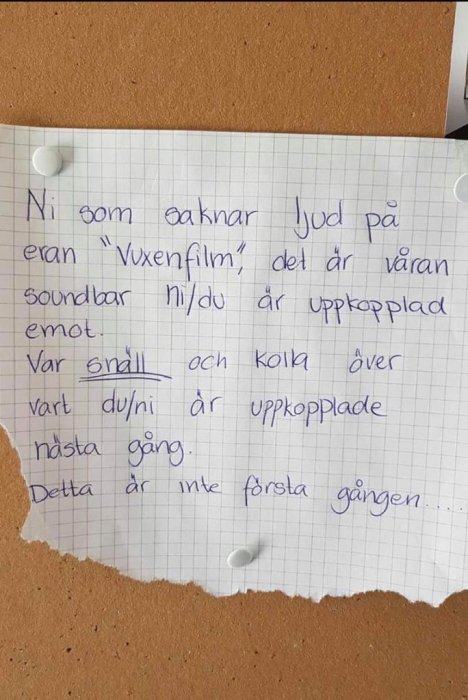 Ni som saknar ljud på
eran "Vuxenfilm", det är våran
soundbar ni/du är uppkopplad
emot.
Var snäll och kolla över
vart du/ni är uppkopplade
nästa gång.
Detta är inte första gången....